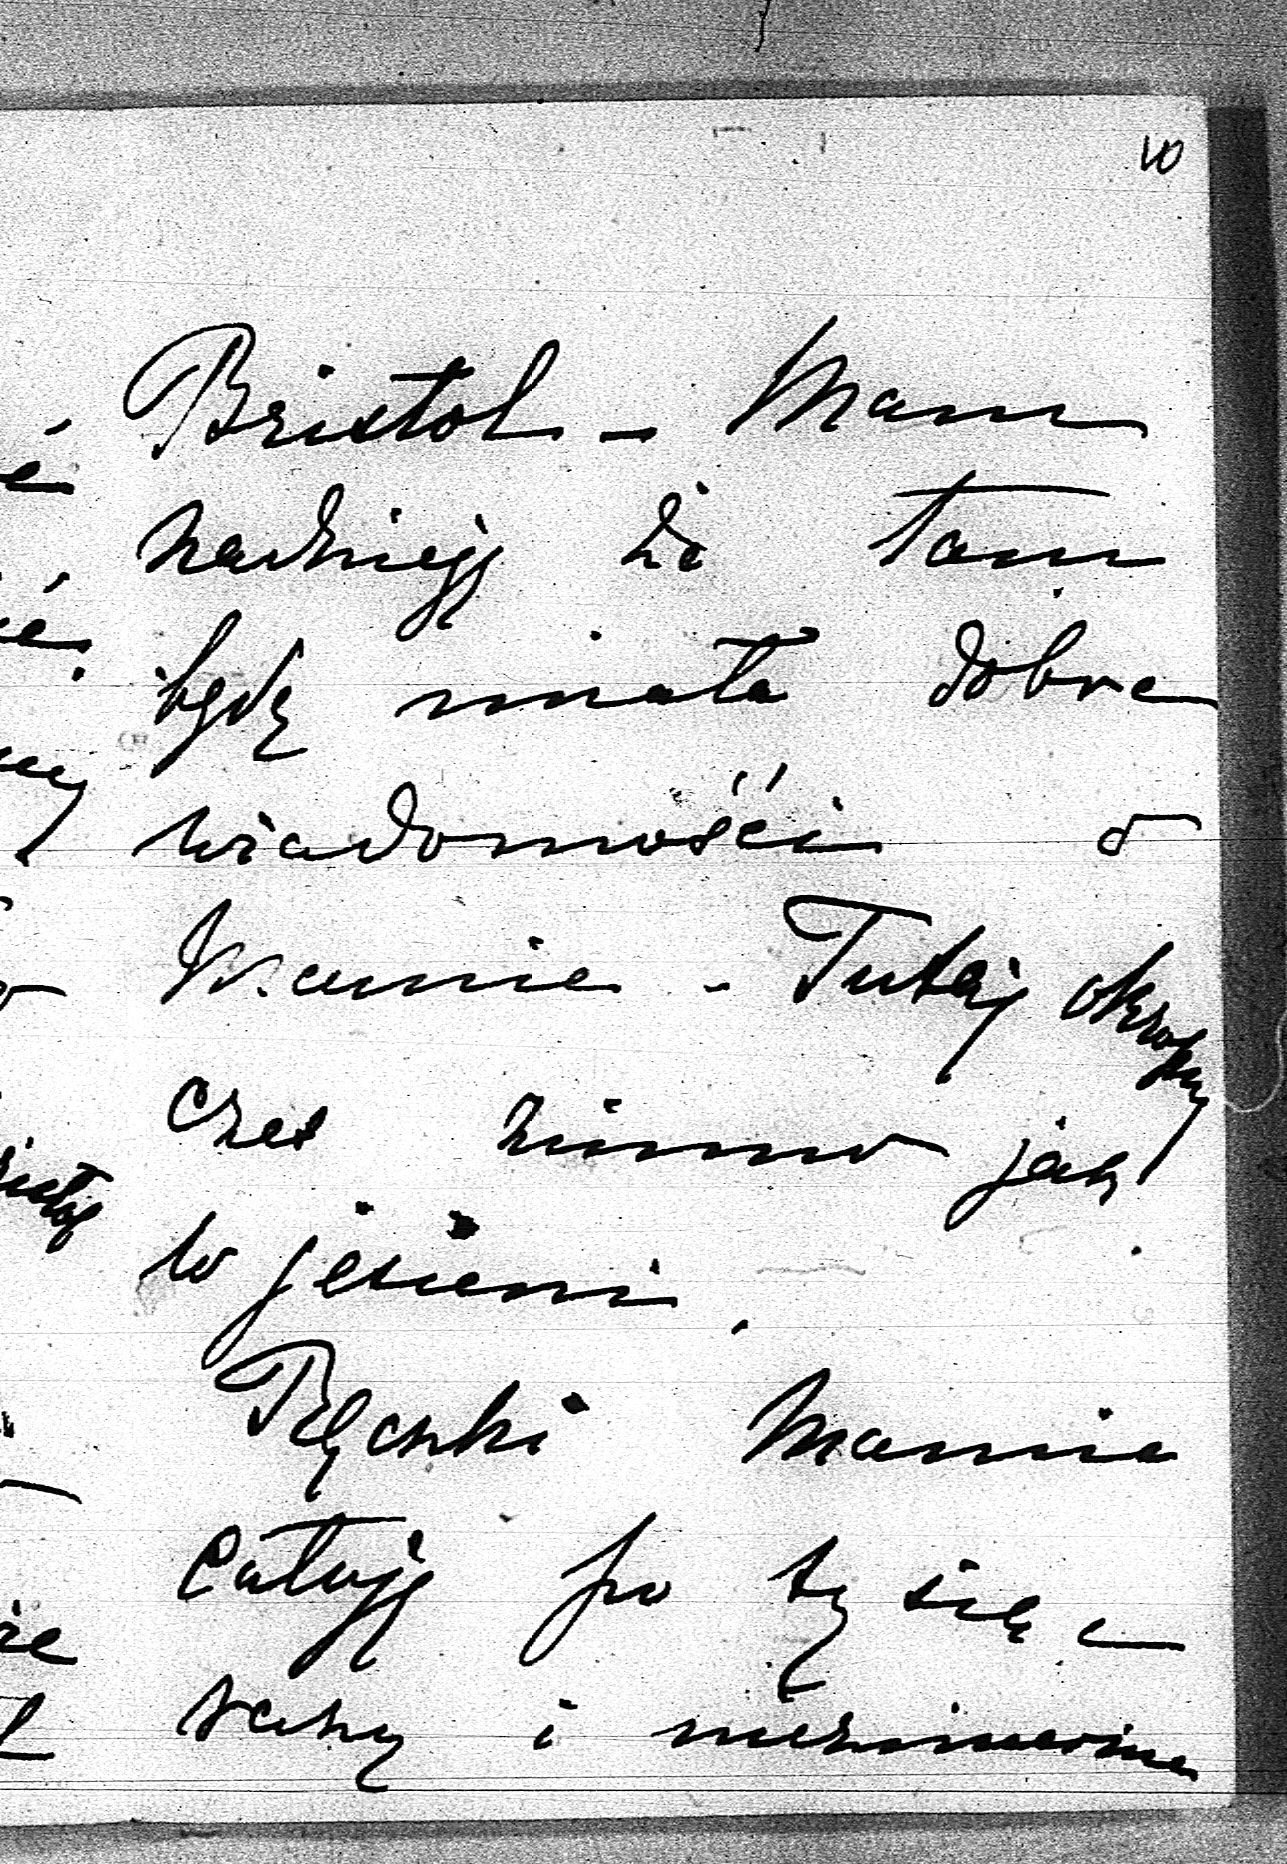 10
Bristol – Mam
nadzieję że tam
będę miała dobre
wiadomości o
Mamie – Tutaj okropny
czas zimno jak
w jesieni.
Rączki Mamie
całuję po tysiąc
razy i niezmiernie